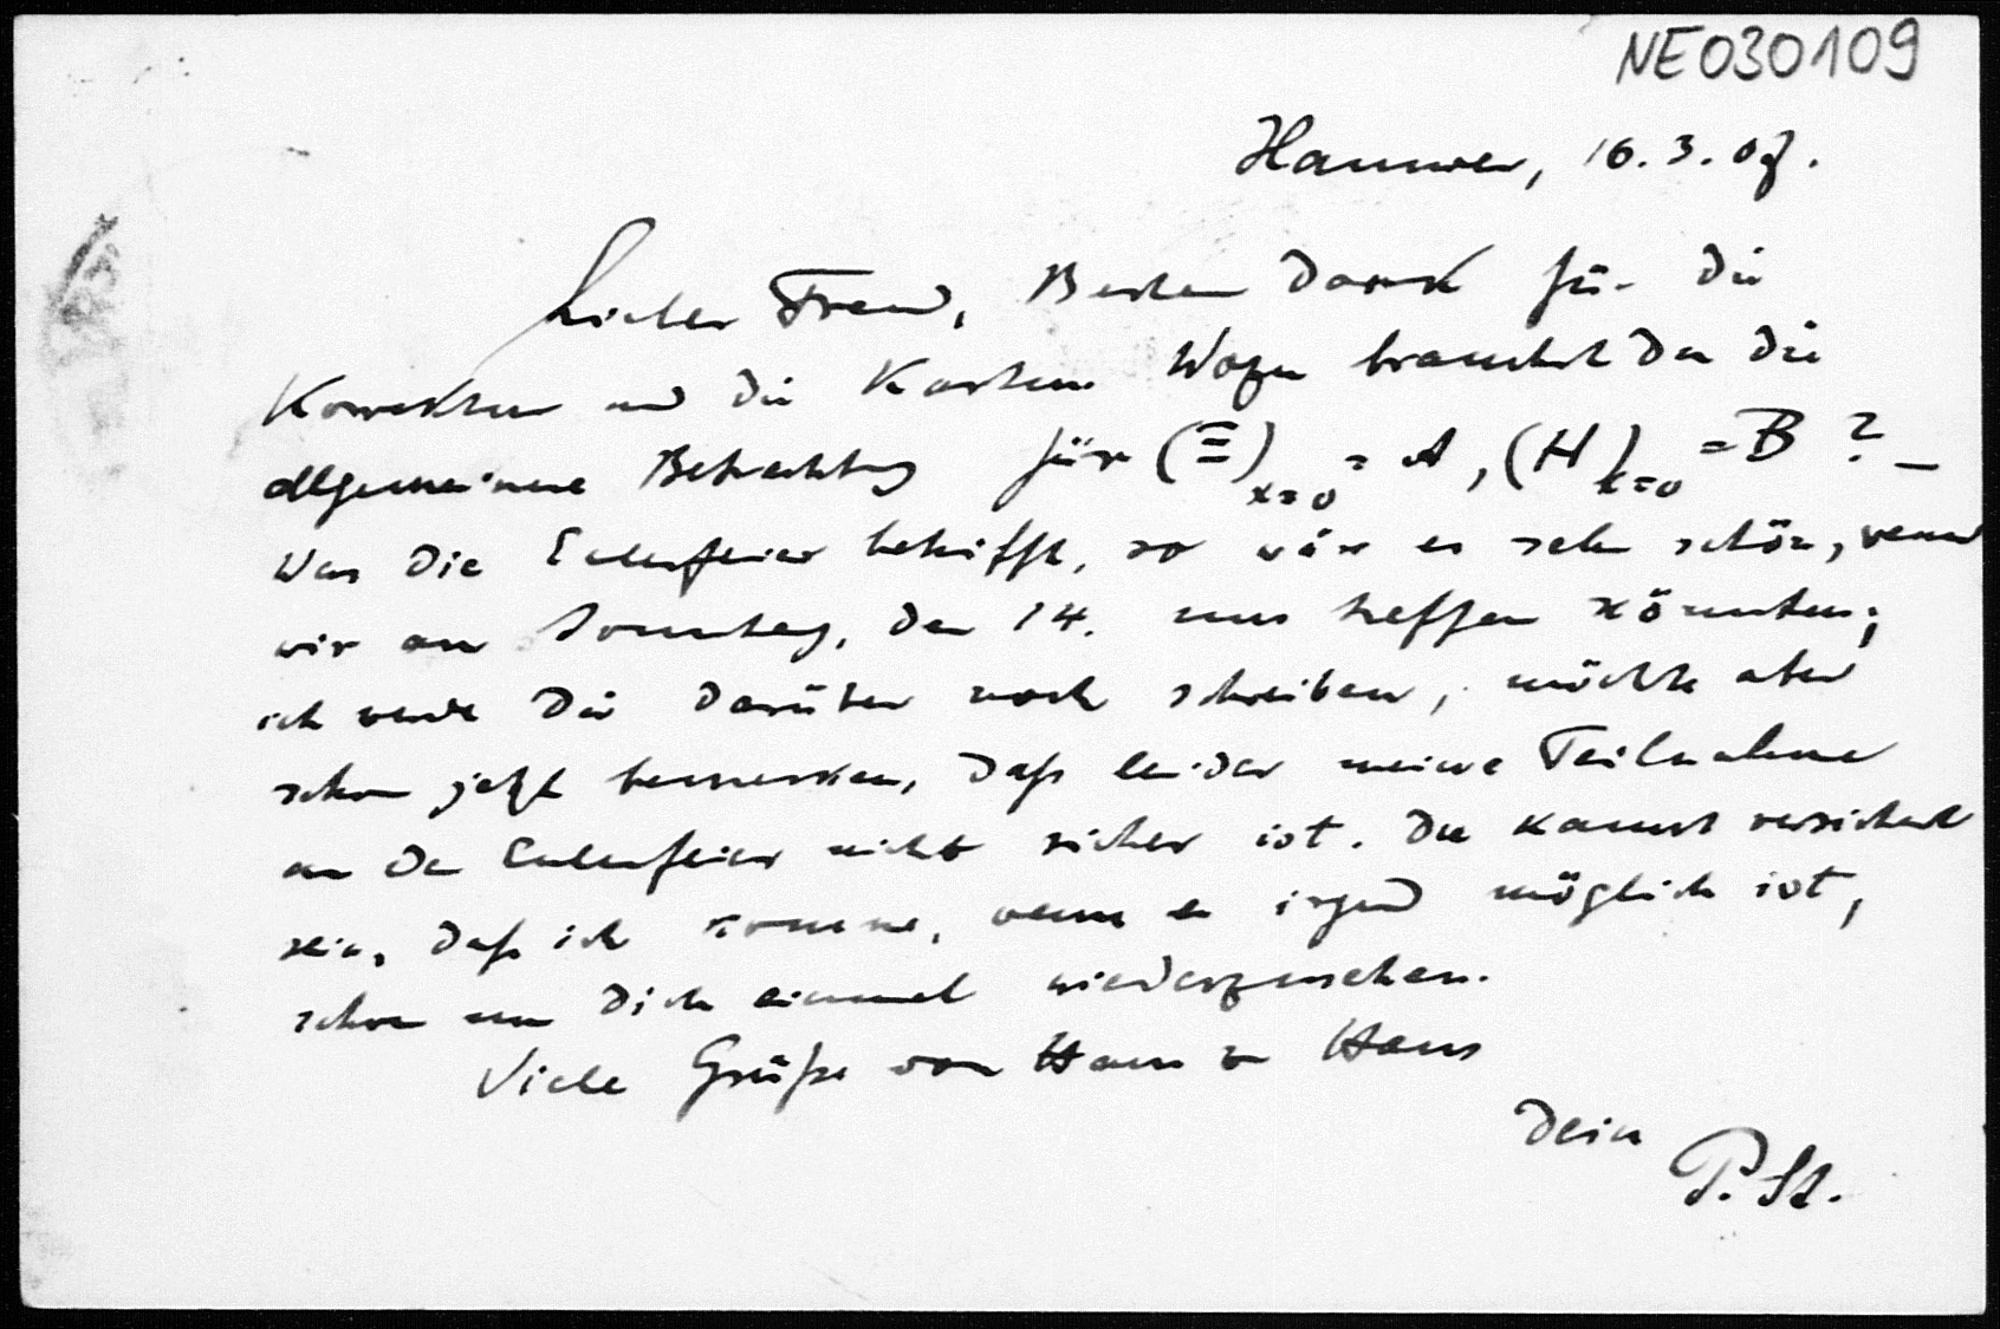 NE030109
Hannover, 16.3.07.
Lieber Freund, Besten Dank für die
Korrektur und die Karten. Wozu brauchst Du die
allgemeinere Betrachtung für (Ξ)x=0 = A, (H)x=0 = B? –
Was die Eulerfeier betrifft, so wäre es sehr schön, wenn
wir am Sonntag, den 14. uns treffen könnten;
ich werde Dir darüber noch schreiben, möchte aber
schon jetzt bemerken, daß leider meine Teilnahme
an der Eulerfeier nicht sicher ist. Du kannst versichert
sein, daß ich komme, wenn es irgend möglich ist,
schon um Dich einmal wiederzusehen.
Viele Grüße von Haus zu Haus
Dein
P. St.